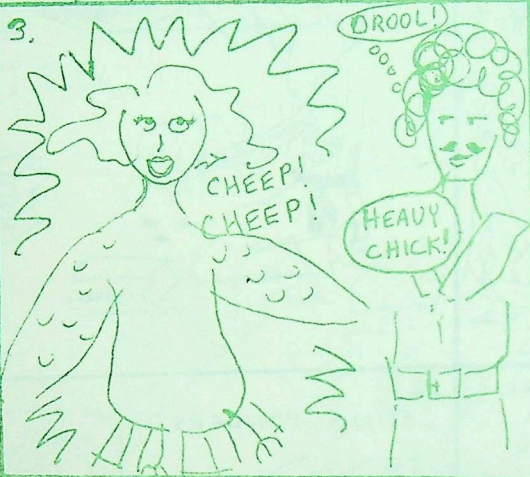 3.
DROOL!
CHEEP!
CHEEP!
HEAVY
CHICK!